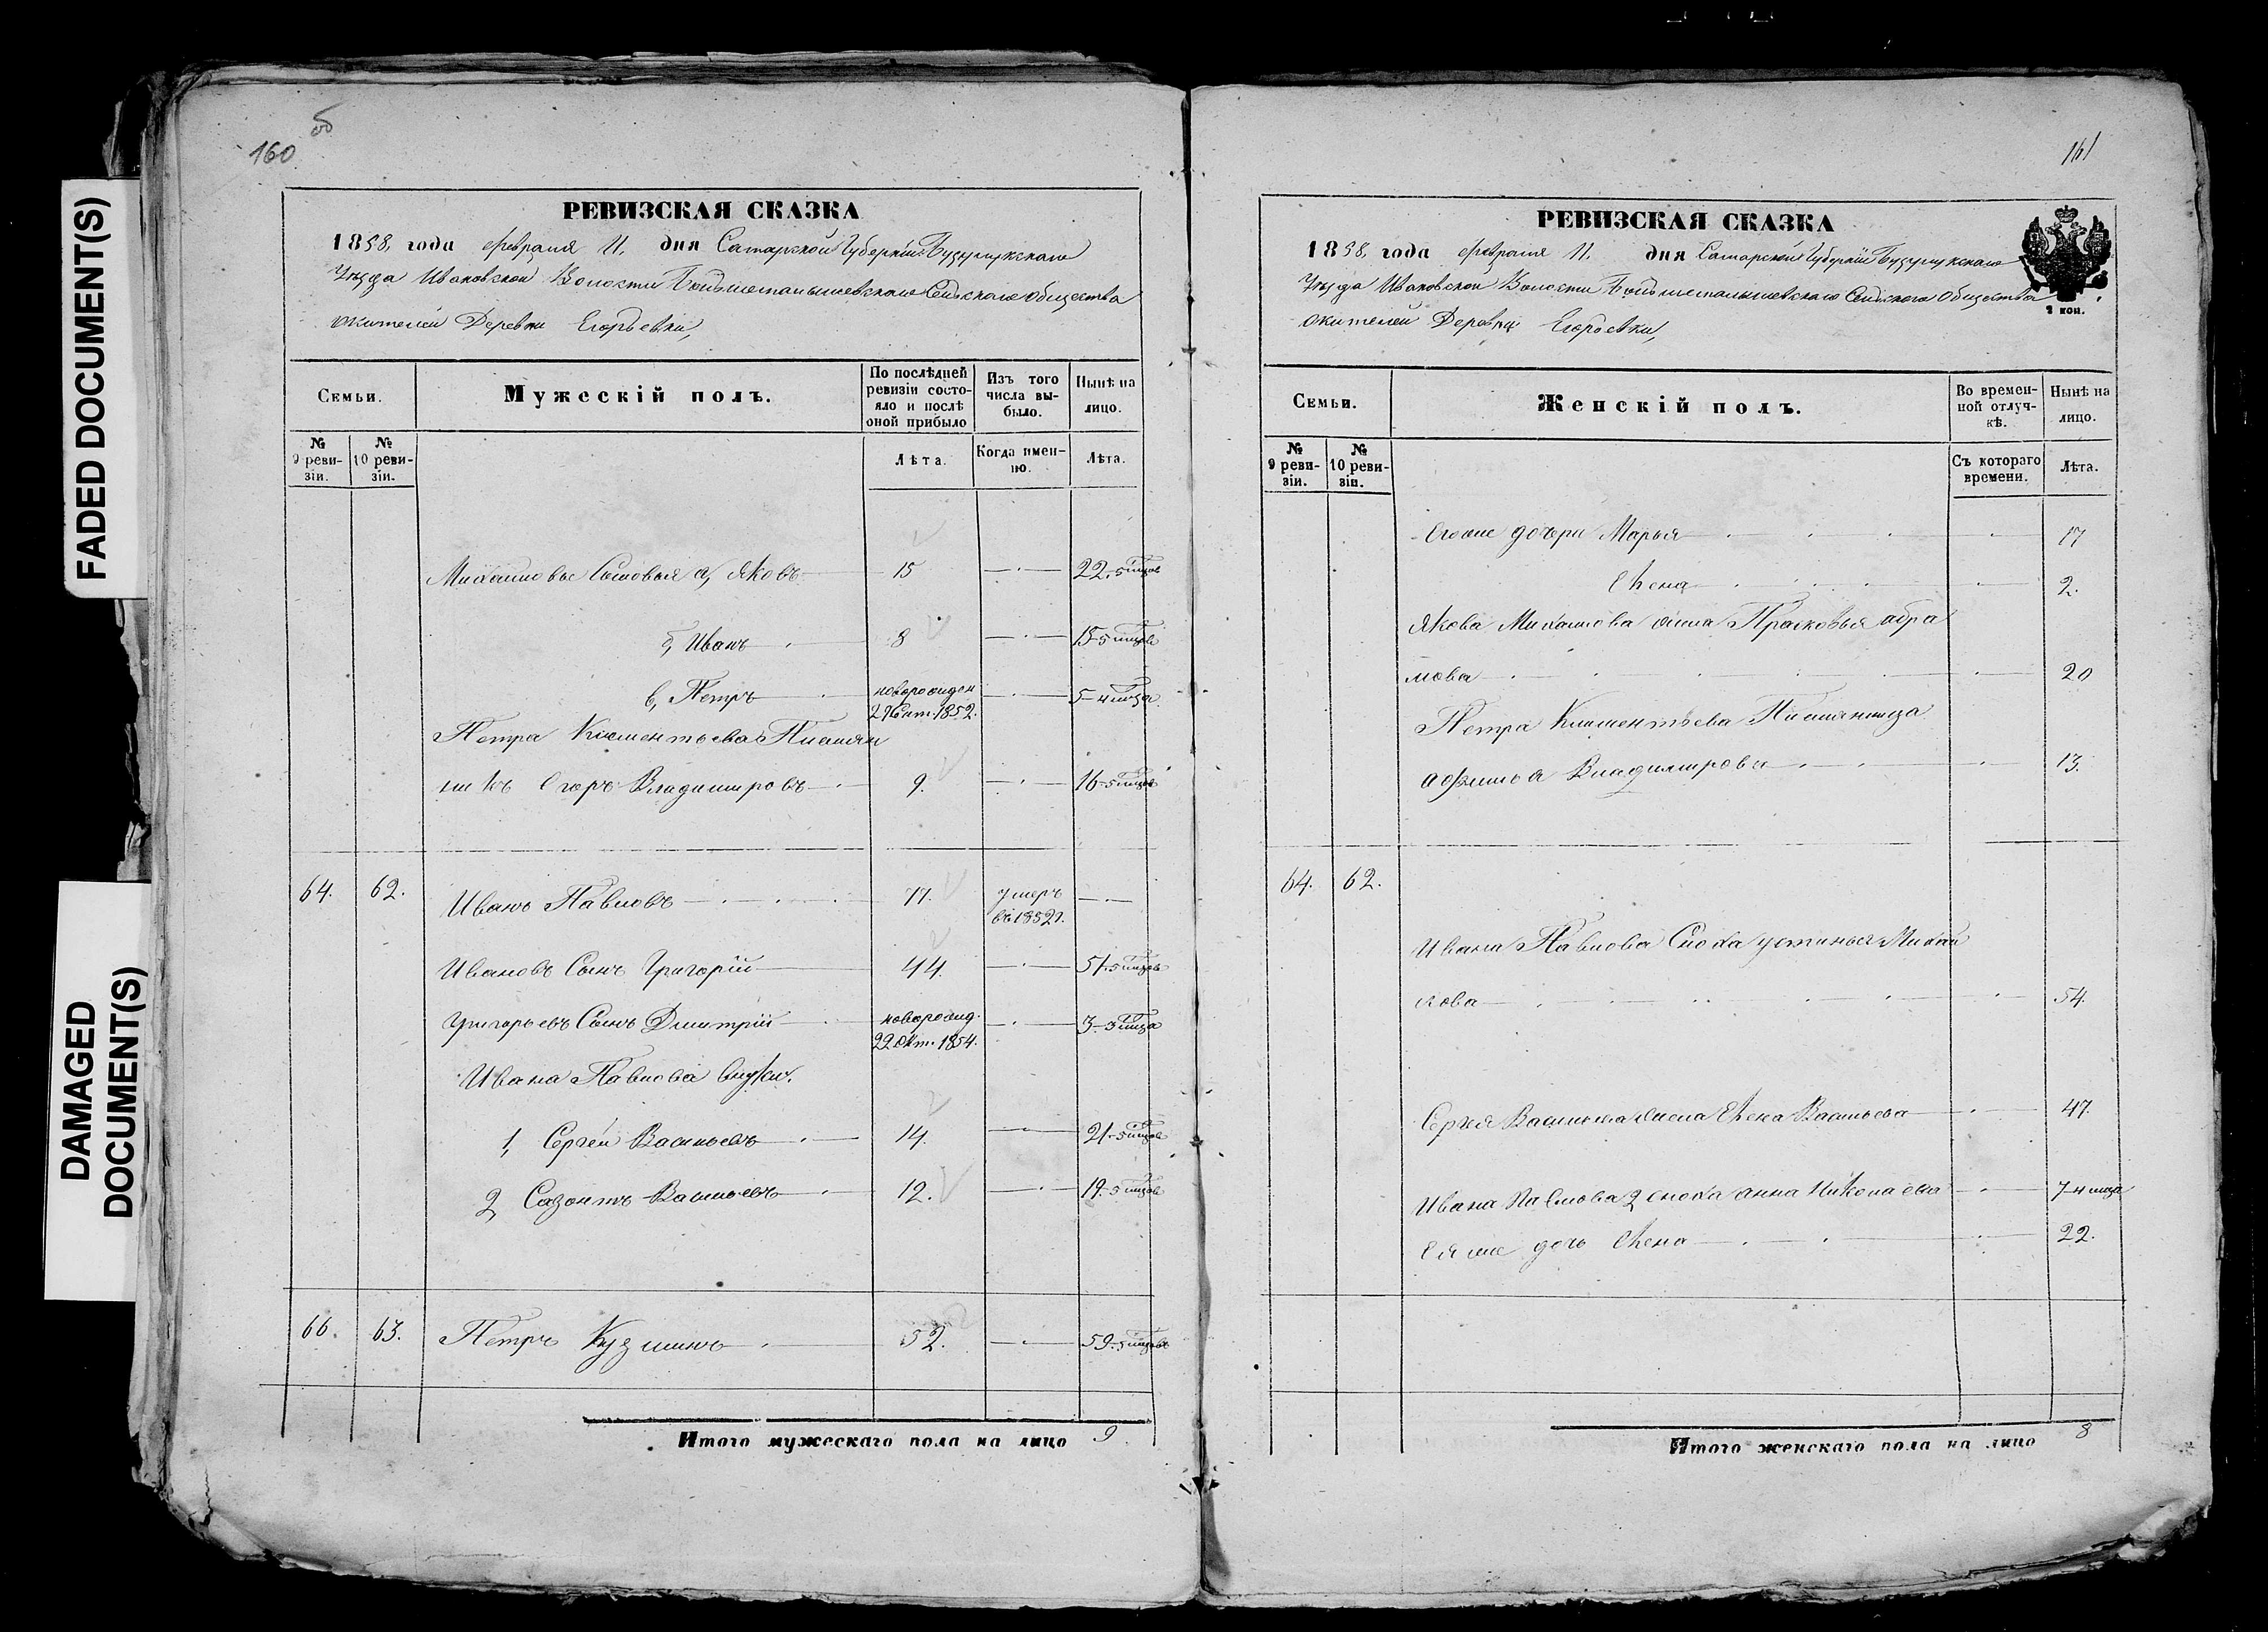 FADED DOCUMENT(S)
DAMAGED
DOCUMENT(S)
160
об
РЕВИЗСКАЯ СКАЗКА
1858, года февраля 11, дня Самарской Губерніи Бузулукскаго
Уѣзда Ивановской Волости Сельскаго Общества
жителей Деревни Егорьевки,
Семьи.
Мужескій полъ.
По послѣдней
ревизіи состо-
яло и послѣ
оной прибыло
Изъ того
числа вы-
было.
Нынѣ на
лицо.
№
9 реви-
зіи.
№
10 реви-
зіи.
Лѣта.
Когда имен-
но.
Лѣта.
Михайловы Сыновья а, Яковъ 15 22. 5 мцов
б, Иванъ 8 15-5 мцов
в, Петръ новорожден 5-4 мца
1852.
Петра Климентьева Племян
никъ Егоръ Владимировъ 9. 16-5 мцов
64. 62. Иванъ Павловъ 77. умеръ
въ 1852 г.
Ивановъ Сынъ Григорій 44. 51-5 мцов
Григорьевъ Сынъ Дмитрій новорожд. 3-3 мца
22 Окт. 1854.
Ивана Павлова внуки.
1, Сергѣй Васильевъ 14. 21-5 мцов
2, Сазонтъ Васильевъ 12. 19-5 мцов
66. 63. Петръ Кузминъ 52. 59-5 мцовъ
Итого мужескаго пола на лицо 9
161
РЕВИЗСКАЯ СКАЗКА
1858, года февраля 11. дня Самарской Губерніи Бузулукскаго
Уѣзда Ивановской Волости Сельскаго Общества
жителей Деревни Егорьевки,
2 коп.
Семьи.
Женскій полъ.
Во времен-
ной отлуч-
кѣ.
Нынѣ на
лицо.
№
9 реви-
зіи.
№
10 реви-
зіи.
Съ котораго
времени.
Лѣта.
Егоже дочери Марья 17
Елена 2.
Якова Михайлова жена Прасковья Абра
мова 20
Петра Климентьева Племянница
Афимья Владимирова 13.
64. 62.
Ивана Павлова Сноха Устинья Михай
лова 54.
Сергея Васильева жена Елена Васильева 47.
Ивана Павлова 2 сноха Анна Николаева 7-4 мца
Ея же дочь Елена 22.
Итого женскаго пола на лицо 8